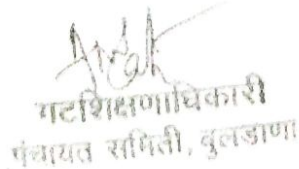 गटशिक्षणाधिकारी
पंचायत समिती, बुलडाणा